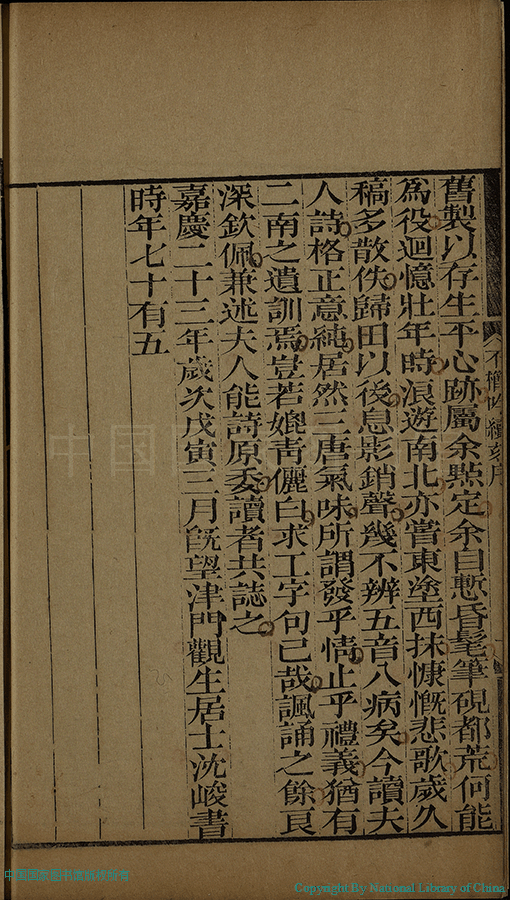 舊製以存生平心跡屬余㸃定余自慙昏髦筆硯都荒何能
為役迴憶壯年時浪遊南北亦嘗東塗西抹慷慨悲歌歲久
稿多散佚歸田以後息影銷聲幾不辨五音八病矣今讀夫
人詩格正意純居然三唐氣味所謂發乎情止乎禮義猶有
二南之遺訓焉豈若媲青儷白求工字句已哉諷誦之餘良
深欽佩兼述夫人能詩原委讀者共誌之
嘉慶二十三年歲次戊寅三月旣望津門觀生居士沈峻書
時年七十有五
Copyright By National Library of China